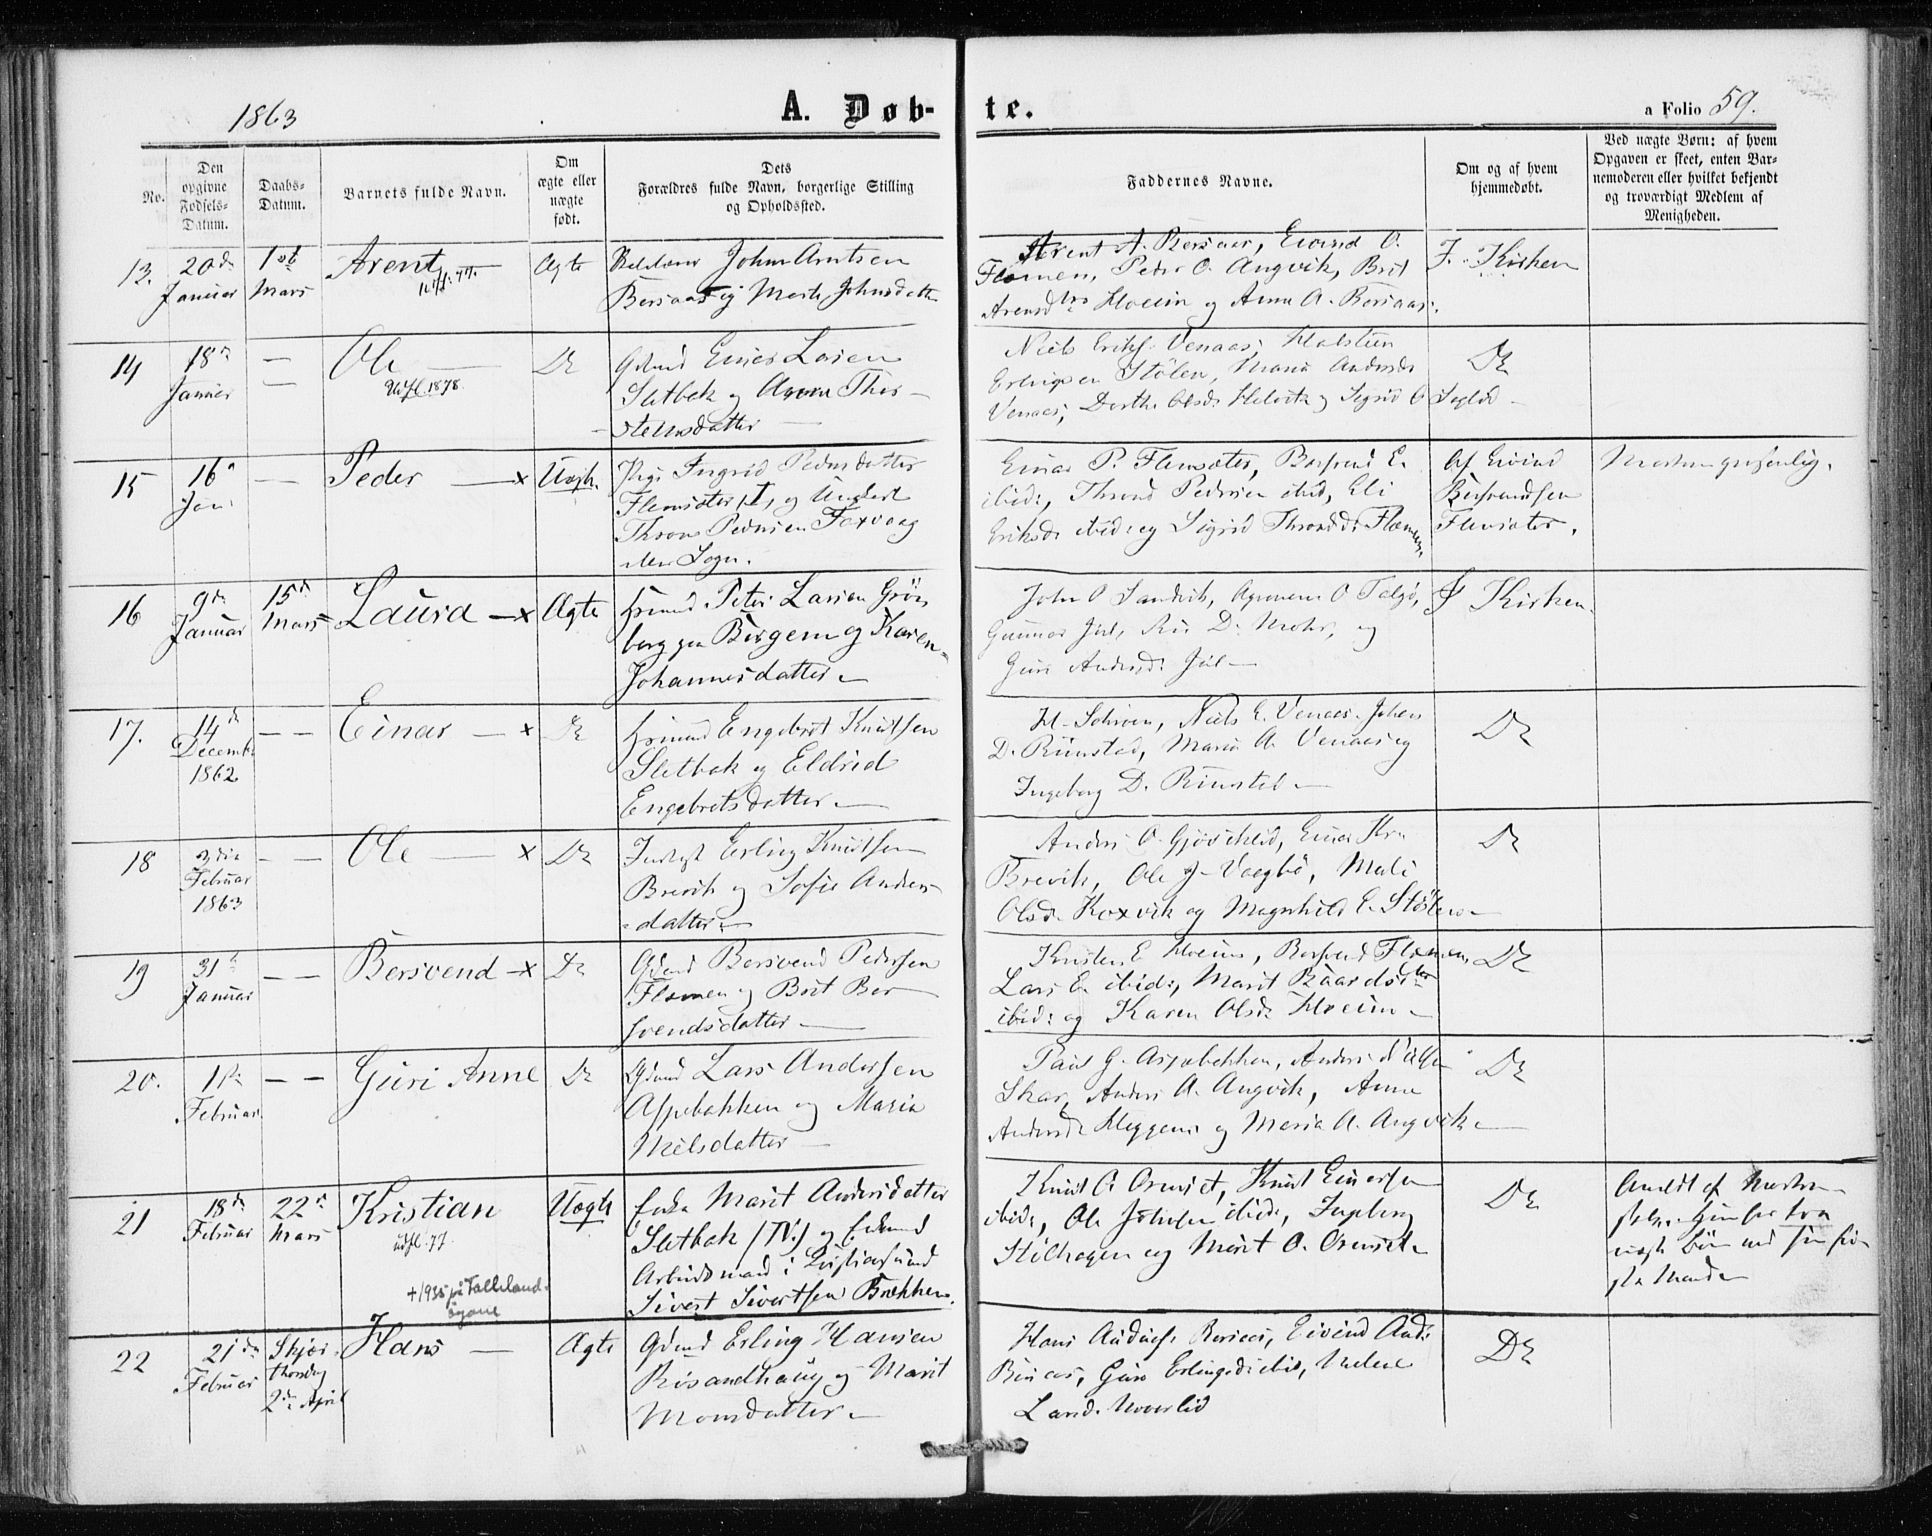 1863
A. Døb-
te.
a Folio 59.
No.
Den
opgivne
Fødsels-
Datum.
Daabs-
Datum.
Barnets fulde Navn.
Om
ægte eller
uægte
født.
Dets
Forældres fulde Navn, borgerlige Stilling
og Opholdssted.
Faddernes Navne.
Om og af hvem
hjemmedøbt.
Ved uægte Børn: af hvem
Opgaven er skeet, enten Bar-
nemoderen eller hvilket bekjendt
og troværdigt Medlem af
Menigheden.
13.
20de
Januar
1ste
Mars
Arent
Ægte
John Arntsen
Bersaas og Johnsdatter
Arent A. Bersaas, Eivind O.
Flemmen, Peder O. Angvik, Brit
Hoem og Anna A. Bersaas.
I Kirken
14
18de
Januar
— —
Ole
Udfl. 1878.
Do
Gdmd Einar Larsen
Sletbak og Anne Thor-
steinsdatter
Niels Eriks. Venaas, Halstein
Erlingsen Stölen, Maria Andersd.
Venaas, Dorthe Olsd. Helvik og Sigrid O
Do
15
16de
Jan.
—
Peder —x
Uægte.
Pige Ingrid Pedersdatter
Flemsæter (I) og Ungkarl
Thron Pedersen Foxvaag
Sogn.
Einar P. Flemsæter, Bersvend E.
ibid:, Thrond Pedersen ibid, Eli
Eriksd. ibid: og Sigrid Thronsd. Flemmen.
Af Eivind
Bersvendsen
Flemsæter.
16
9de
Januar
15de
Mars
Laura —x
Ægte
Peter Larsen Grön-
borg paa Bergem og Karen
Johannesdatter
John O Sandvik, O Talgö,
Gunnar Jul, D. Mohr, og
Guri Andersd. Jul
I Kirken
17.
14de
Decembr
1862
— —
Einar — x
Do
Engebret Knutsen
Sletbak og Eldrid
Engebretsdatter
Niels E. Venaas, Johan
D. Rimstad, Maria A. Venaas og
Ingeborg D. Rimstad
Do
18
3die
Februar
1863
— —
Ole — x
Do
Erling Knutsen
Brevik og Sofie Anders-
datter
Anders O. Gjöviklid, Einar Kn.
Brevik, Ole J. Vaagbö, Mali
Olsd. Koxvik og Magnhild E. Stölen
Do
19
31te
Januar
— —
Bersvend —x
Do
Gdmd Bersvend Pedersen
Flemmen og Brit Ber-
svendsdatter
Knut E. Hoem, Bersvend Flemmen,
Lars E. ibid:, Marit Baardsdtr
ibid: og Karen Olsd. Hoem
Do
20.
1ste
Februar
— —
Guri Anne
Do
Gdmd Lars Andersen
Aspebakken og Maria
Nielsdatter
Paul G. Aspebakken, Anders
Skar, Anders A. Angvik, Anne
Andersd. Heggem og Maria A. Angvik
Do
21
18de
Februar
22de
Mars
Kristian
udfl. 77
+1935 på Falkland-
øyane
Uægte
Enke Marit Andersdatter
Sletbak (IV) og Enkemd
Arbeidsmand i Kristiansund
Sivert Sivertsen Brekken.
Knut O. Ormset, Knut Einarsen
ibid:, Ole Johnsen ibid:, Ingeborg
Stölhagen og Marit O. Ormset
Do
Anmeldt af Moderen
22
21de
Februar
Skjær-
thorsdag
2den April
Hans —
Ægte
Gdmd Erling Hansen
Risandhaug og Marit
Monsdatter
Hans Bersaas, Eivind And.
Guri Erlingsd. ibid,
Larsd.
Do